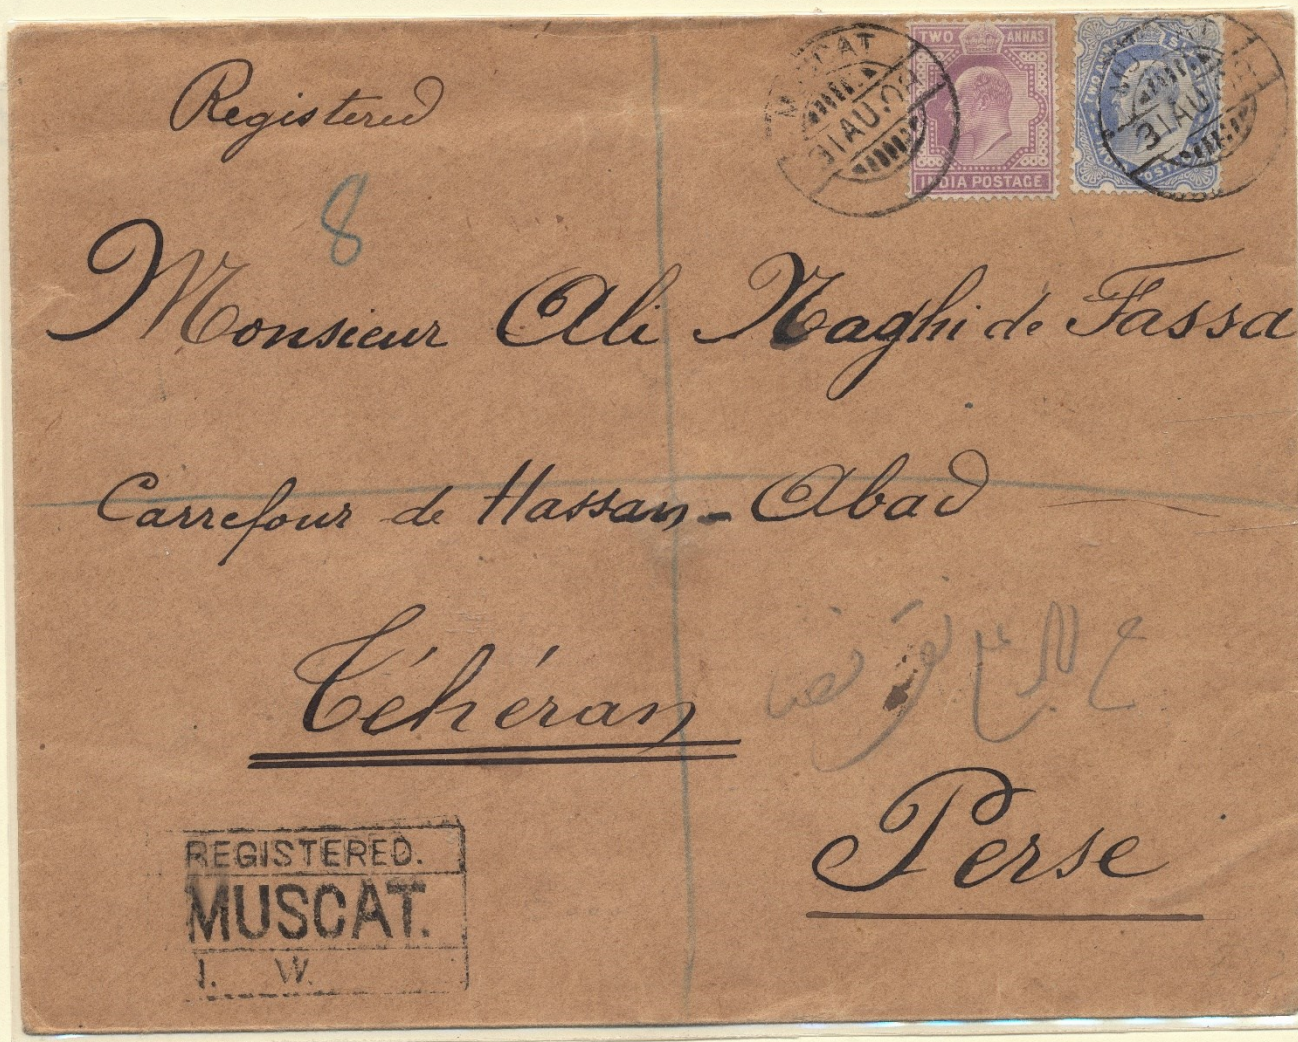 Registered
8
TWO ANNAS
INDIA POSTAGE
MUSCAT
31 AU. 08
31 AU
Monsieur Ali Naghi de Fassa
Carrefour de Hassan-Abad
Téhéran
Perse
REGISTERED.
MUSCAT.
W.